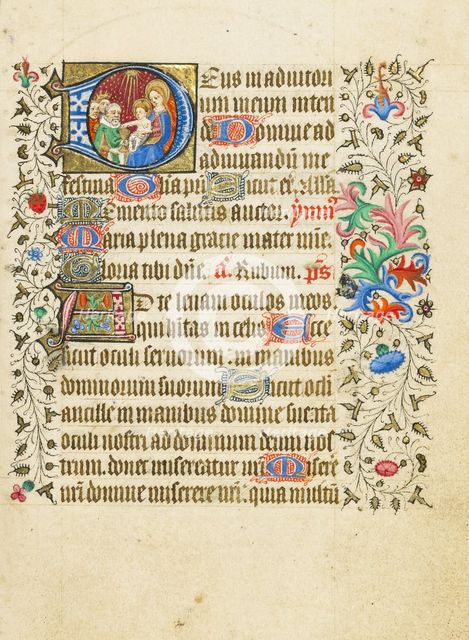 Deus in adiutori
um meum inten
de Domine ad
adiuuandū me
festina Gloria pri Sicut er̄. Alla
Memento salutis auctor. ymn9
Maria plena gracie mater mie.
Gloria tibi dn̄e. a. Rubum. ps
Ad te leuaui oculos meos.
qui habitas in celis Ecce
sicut oculi seruorum: in manibus
dominorum suorum Sicut oculi
ancille in manibus domine sue: ita
oculi nostri ad dominum deum nos
trum. donec misereatur nr̄i Misere
nr̄i domine miserere nr̄i. quia multū